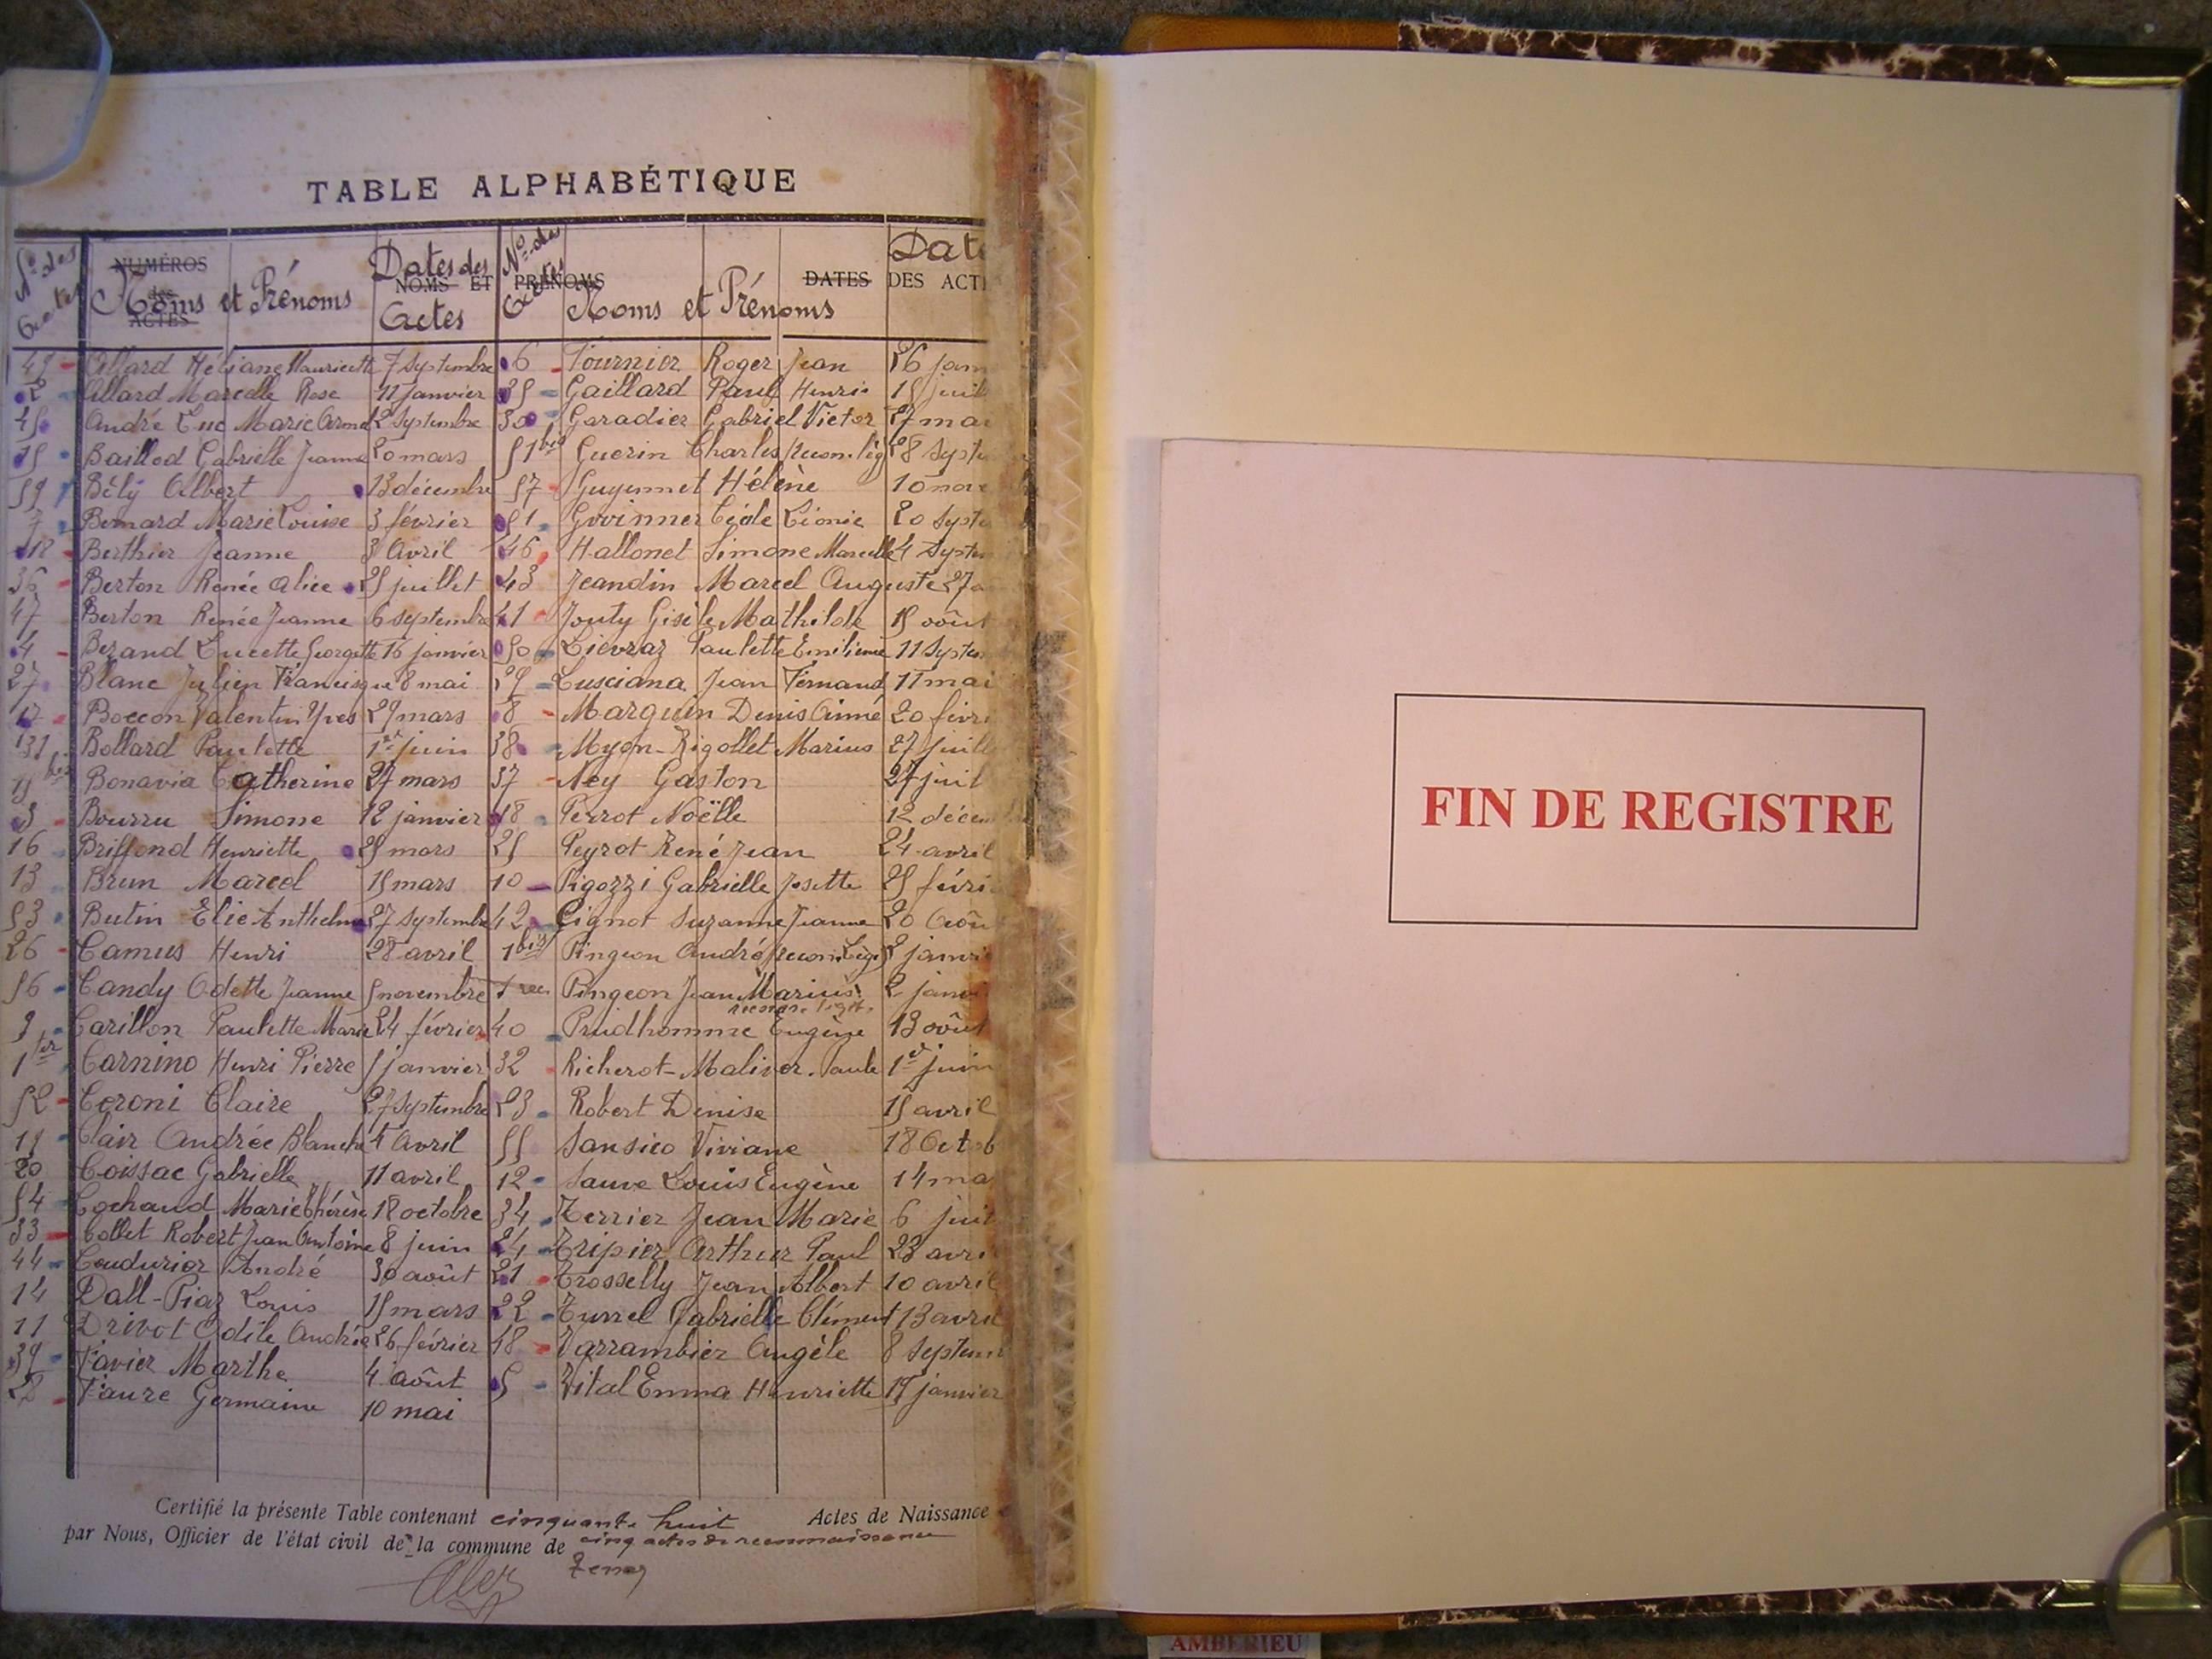 TABLE ALPHABÉTIQUE
Nos des Actes
NUMÉROS des ACTES
Noms et Prénoms
Dates des Actes
NOMS ET PRÉNOMS
Nos des Actes
Noms et Prénoms
DATES DES ACT
Date
49 Allard Héliane Mauricette 7 Septembre
2 Allard Marcelle Rose 11 janvier
45 André Luc Marie Armd 2 Septembre
15 Baillod Gabrielle Jeanne 20 mars
59 Bély Albert 13 décembre
7 Bernard Marie Louise 3 février
18 Berthier Jeanne 3 Avril
36 Berton Renée Alice 25 juillet
47 Berton Renée Jeanne 6 septembre
4 Bezand Lucette Georgette 16 janvier
27 Blanc Julien Francisque 8 mai
17 Boccon Valentin Yves 29 mars
31 Bollard Paulette 1er juin
15 bis Bonavia Catherine 27 mars
3 Bourru Simone 12 janvier
16 Briffond Henriette 25 mars
13 Brun Marcel 15 mars
53 Butin Elie Anthelme 27 Septembre
26 Camus Henri 28 avril
56 Candy Odette Jeanne 5 novembre
9 Carillon Paulette Marie 24 février
1er Carnino Henri Pierre 1 janvier
52 Ceroni Claire 27 Septembre
19 Clair Andrée Blanche 4 Avril
20 Coissac Gabrielle 11 avril
54 Cochaud Marie Thérèse 18 octobre
33 Collet Robert Jean Antoine 8 juin
44 Coudurier André 30 août
14 Dall-Piaz Louis 15 mars
11 Drivot Odile Andrée 26 février
39 Favier Marthe 4 août
28 Faure Germaine 10 mai
6 Fournier Roger Jean 26 janv
35 Gaillard Paul Henri 15 juil
30 Garadier Gabriel Victor 27 mai
51 bis Guerin Charles (reconn. lég) 28 Septe
57 Guyennet Hélène 10 nove
51 Grvinner Cécile Léonie 20 Septe
46 Hallonet Simone Marcelle 4 Septem
43 Jeandin Marcel Auguste 27 a
41 Jouty Gisèle Mathilde 15 août
50 Lievraz Paulette Emilienne 11 Septem
29 Lusciana Jean Fernand 11 mai
8 Marguin Denis Aimé 20 févri
38 Myon-Rigollet Marius 27 juill
37 Ney Gaston 27 juil
18 Perrot Noëlle 12 décem
25 Peyrot René Jean 24 avril
10 Pigozzi Gabrielle Josette 25 févri
42 Pignot Suzanne Jeanne 20 Aoû
1 bis Pingeon André (reconn. Lég) 2 janvi
1 rec Pingeon Jean Marius 2 janvi
reconn. légit.
40 Prudhomme Eugène 13 août
32 Richerot-Maliver Paule 1er juin
23 Robert Denise 15 avril
55 Sansico Viviane 18 Octob
12 Sauve Louis Eugène 14 ma
34 Terrier Jean Marie 6 juil
24 Tripier Arthur Paul 23 avri
21 Trosselly Jean Albert 10 avril
22 Turrel Gabrielle Clément 13 avril
48 Varrambier Angèle 8 Septem
5 Vital Emma Henriette 19 janvier
Certifié la présente Table contenant cinquante huit Actes de Naissance
par Nous, Officier de l'état civil de la commune de cinq actes de reconnaissance
Tenay
FIN DE REGISTRE
AMBERIEU